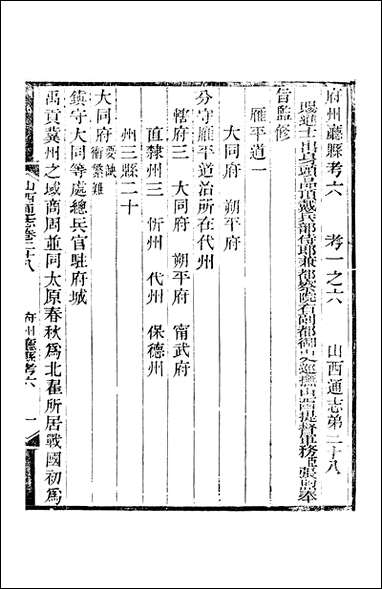 府州廳縣考六　考一之六　山西通志第二十八
賜進士出身頭品頂戴兵部侍郎兼都察院右副都御史巡撫山西提督軍務張煦奉
旨監修
雁平道一
大同府　朔平府
分守雁平道治所在代州
轄府三　大同府　朔平府　甯武府
直隸州三　忻州　代州　保德州
州三縣二十
大同府 要缺衝繁難
鎮守大同等處總兵官駐府城
禹貢冀州之域商周並同太原春秋爲北翟所居戰國初爲
山西通志卷二十八　府州廳縣考六　一